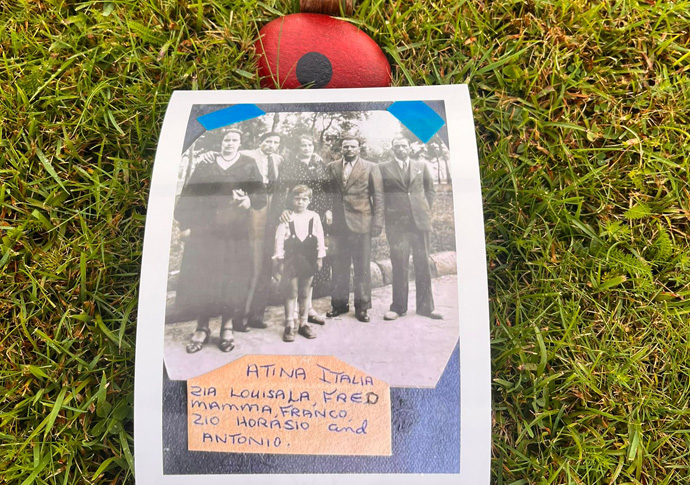 ATINA ITALIA
ZIA LOUISALA, FRED
MAMMA, FRANCO,
ZIO HORÁSIO and
ANTONIO.